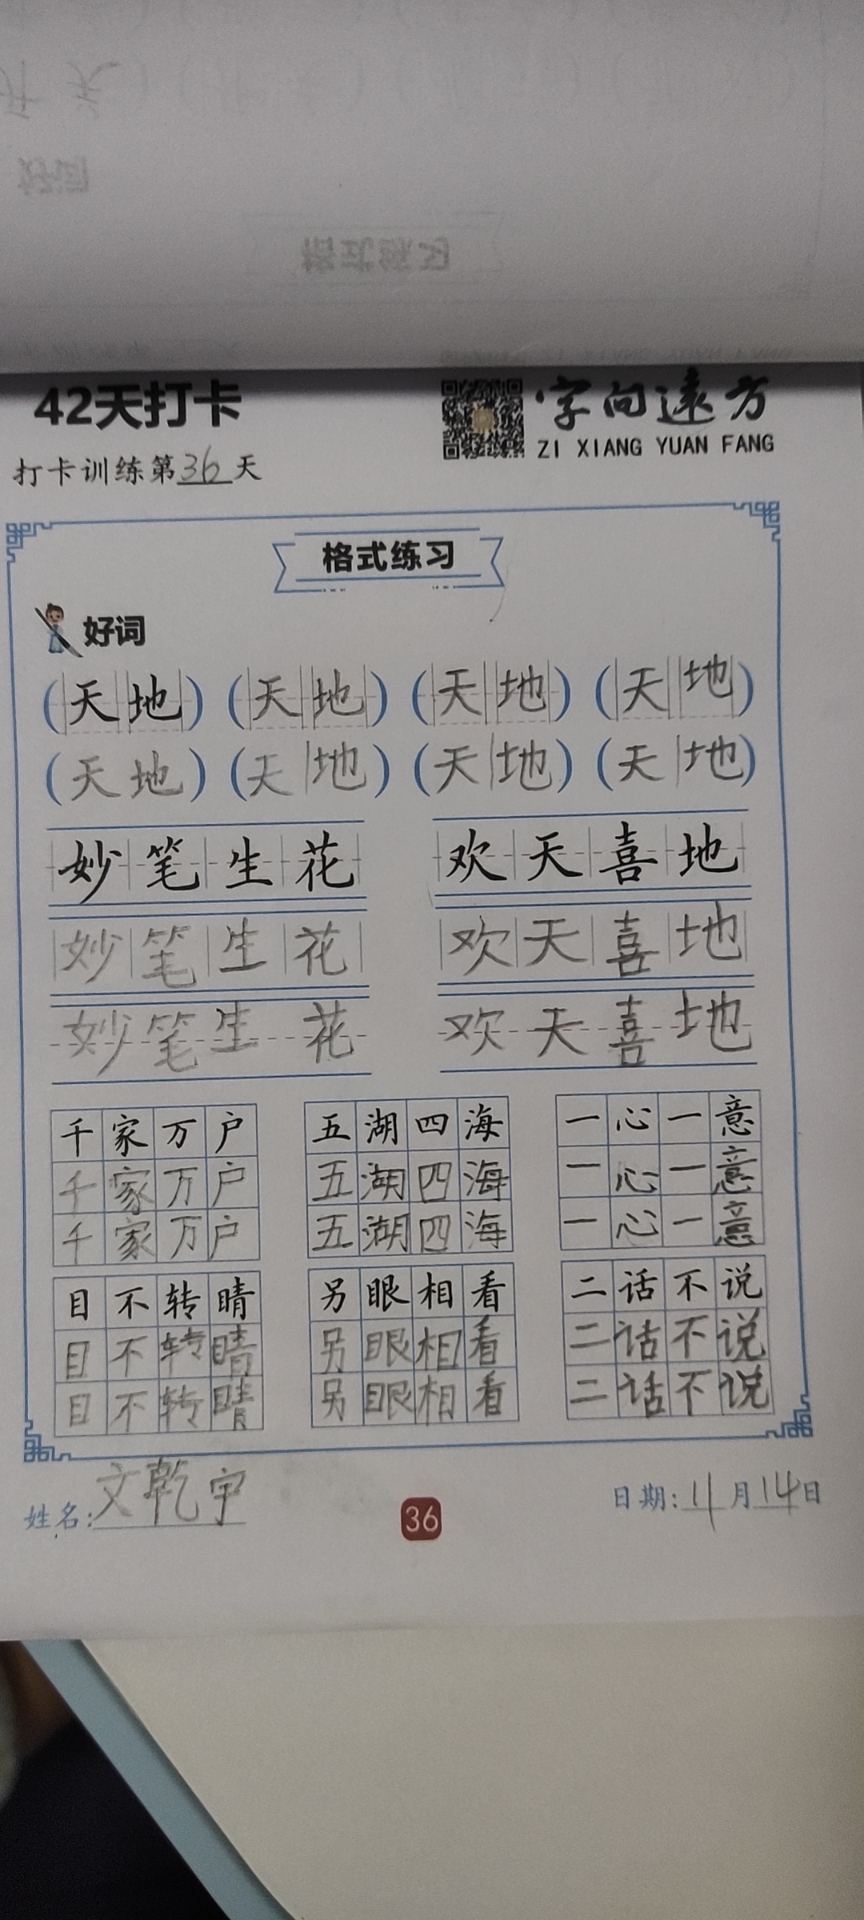 42天打卡
字向遠方
ZI XIANG YUAN FANG
打卡训练第36天
格式练习
好词
(天地)(天地)(天地)(天地)
(天地)(天地)(天地)(天地)
妙笔生花 欢天喜地
妙笔生花 欢天喜地
妙笔生花 欢天喜地
千家万户 五湖四海 一心一意
千家万户 五湖四海 一心一意
千家万户 五湖四海 一心一意
目不转睛 另眼相看 二话不说
目不转睛 另眼相看 二话不说
目不转睛 另眼相看 二话不说
姓名:文乾宇
36
日期:11月14日